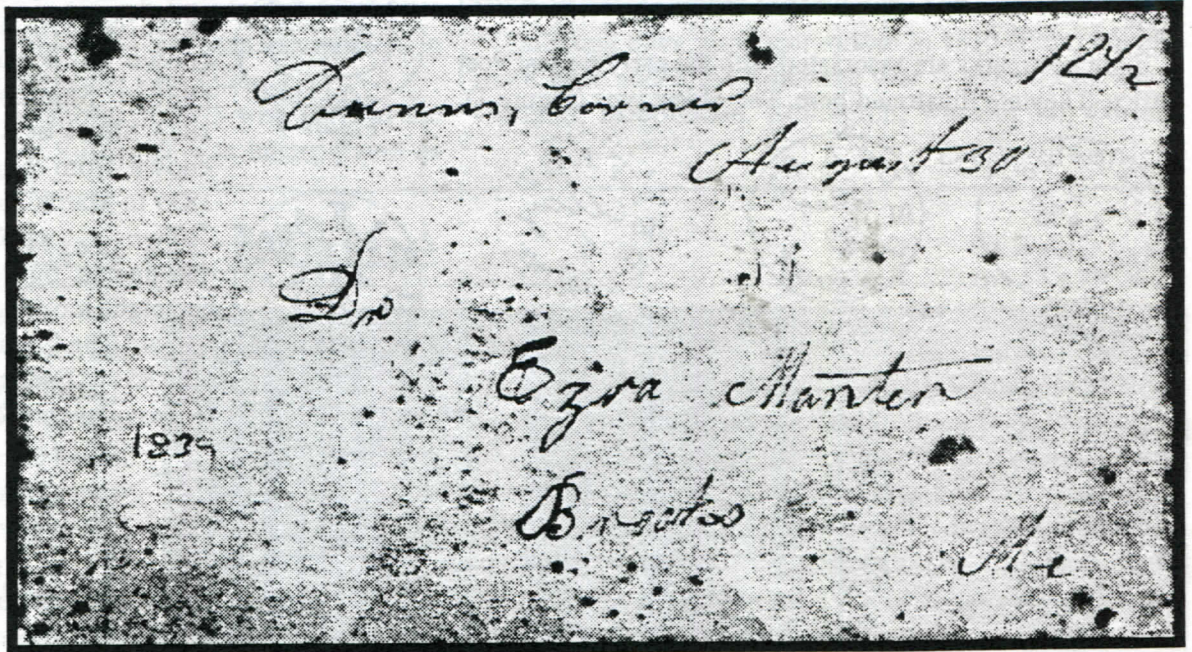 Dunns, Corner 12½
August 30
Dr
Ezra Manter
1839
Brooks
Me